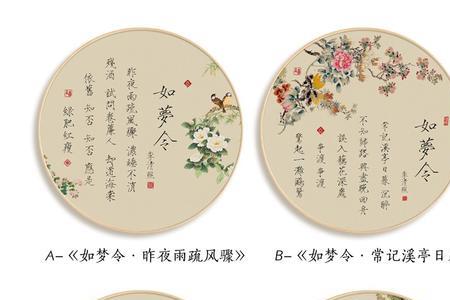 如夢令
李清照
昨夜雨疏風驟 濃睡不消
殘酒 試問卷簾人 却道海棠
依舊 知否 知否 應是
綠肥紅瘦
如夢令
李清照
常記溪亭日暮 沉醉
不知歸路 興盡晚回舟
誤入藕花深處
爭渡 爭渡
驚起一灘鷗鷺
A-《如梦令·昨夜雨疏风骤》
B-《如梦令·常记溪亭日